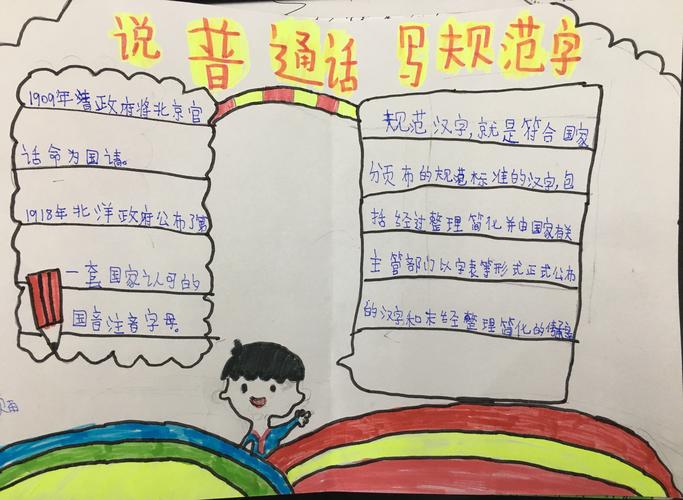 说普通话 写规范字
1909年清政府将北京官
话命为国语。
1918年北洋政府公布了第
一套国家认可的
国音注音字母。
规范汉字,就是符合国家
颁布的规范标准的汉字,包
括经过整理简化并由国家有关
主管部门以字表等形式正式公布
的汉字和未经整理简化的